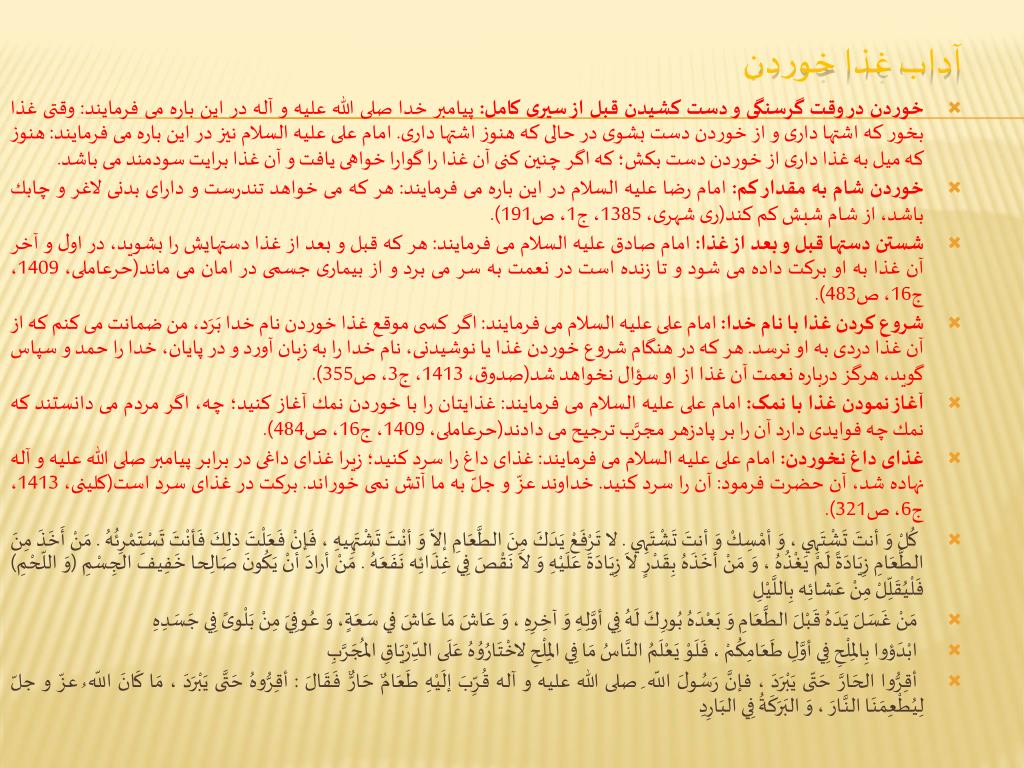 آداب غذا خوردن
خوردن در وقت گرسنگی و دست کشیدن قبل از سیری کامل: پیامبر خدا صلی الله علیه و آله در این باره می فرمایند: وقتی غذا
بخور که اشتها داری و از خوردن دست بشوی در حالی که هنوز اشتها داری. امام علی علیه السلام نیز در این باره می فرمایند: هنوز
که میل به غذا داری از خوردن دست بکش؛ که اگر چنین کنی آن غذا را گوارا خواهی یافت و آن غذا برایت سودمند می باشد.
خوردن شام به مقدار کم: امام رضا علیه السلام در این باره می فرمایند: هر که می خواهد تندرست و دارای بدنی لاغر و چابك
باشد، از شام شبش کم کند(ری شهری، 1385، ج1، ص191).
شستن دستها قبل و بعد از غذا: امام صادق علیه السلام می فرمایند: هر که قبل و بعد از غذا دستهایش را بشوید، در اول و آخر
آن غذا به او برکت داده می شود و تا زنده است در نعمت به سر می برد و از بیماری جسمی در امان می ماند(حرعاملی، 1409،
ج16، ص483).
شروع کردن غذا با نام خدا: امام علی علیه السلام می فرمایند: اگر کسی موقع غذا خوردن نام خدا بَرَد، من ضمانت می کنم که از
آن غذا دردی به او نرسد. هر که در هنگام شروع خوردن غذا یا نوشیدنی، نام خدا را به زبان آورد و در پایان، خدا را حمد و سپاس
گوید، هرگز درباره نعمت آن غذا از او سؤال نخواهد شد(صدوق، 1413، ج3، ص355).
آغاز نمودن غذا با نمک: امام علی علیه السلام می فرمایند: غذایتان را با خوردن نمك آغاز کنید؛ چه، اگر مردم می دانستند که
نمك چه فوایدی دارد آن را بر پادزهر مجرَّب ترجیح می دادند(حرعاملی، 1409، ج16، ص484).
غذای داغ نخوردن: امام علی علیه السلام می فرمایند: غذای داغ را سرد کنید؛ زیرا غذای داغی در برابر پیامبر صلی الله علیه و آله
نهاده شد، آن حضرت فرمود: آن را سرد کنید. خداوند عزّ و جلّ به ما آتش نمی خوراند. برکت در غذای سرد است(کلینی، 1413،
ج6، ص321).
كُلْ وَ أنتَ تَشْتَهِي ، وَ أمْسِكْ وَ أنتَ تَشْتَهِي . لا تَرْفَعْ يَدَكَ مِنَ الطَّعَامِ إلاّ وَ أنْتَ تَشْتَهِيهِ ، فَإنْ فَعَلْتَ ذلِكَ فَأنْتَ تَسْتَمْرِئُهُ . مَنْ أَخَذَ مِنَ
الطَّعَامِ زِيَادَةً لَمْ يَغْذُهُ ، وَ مَنْ أخَذَهُ بِقَدْرٍ لاَ زِيَادَةَ عَلَيْهِ وَ لاَ نَقْصَ فِي غِذَائِه نَفَعَهُ . مَنْ أرادَ أنْ يَكُونَ صَالِحا خَفِيفَ الجِسْمِ (وَ اللَّحْمِ)
فَلْيُقَلِّلْ مِنْ عَشائِه بِاللَّيْلِ
مَنْ غَسَلَ يَدَهُ قَبْلَ الطَّعَامِ وَ بَعْدَهُ بُورِكَ لَهُ فِي أوَّلِهِ وَ آخِرِهِ ، وَ عَاشَ مَا عَاشَ في سَعَةٍ، وَ عُوفِيَ مِنْ بَلْوىً فِي جَسَدِهِ
ابْدَؤوا بِالمِلْحِ فِي أوَّلِ طَعَامِكُمْ ، فَلَوْ يَعْلَمُ النَّاسُ مَا فِي المِلْحِ لاخْتَارُوُهُ عَلَى الدِّرْيَاقِ المُجَرَّبِ
أقِرُّوا الحَارَّ حَتّى يَبْرَدَ ، فإنَّ رَسُولَ اللّه ِ صلی الله علیه و آله قُرِّبَ إلَيْهِ طَعَامٌ حَارٌّ فَقَالَ : أقِرُّوهُ حَتَّى يَبْرَدَ ، مَا كَانَ اللّه ُ عزّ و جلّ
لِيُطْعِمَنَا النَّارَ ، وَ البَرَكَةُ فِي البَارِدِ